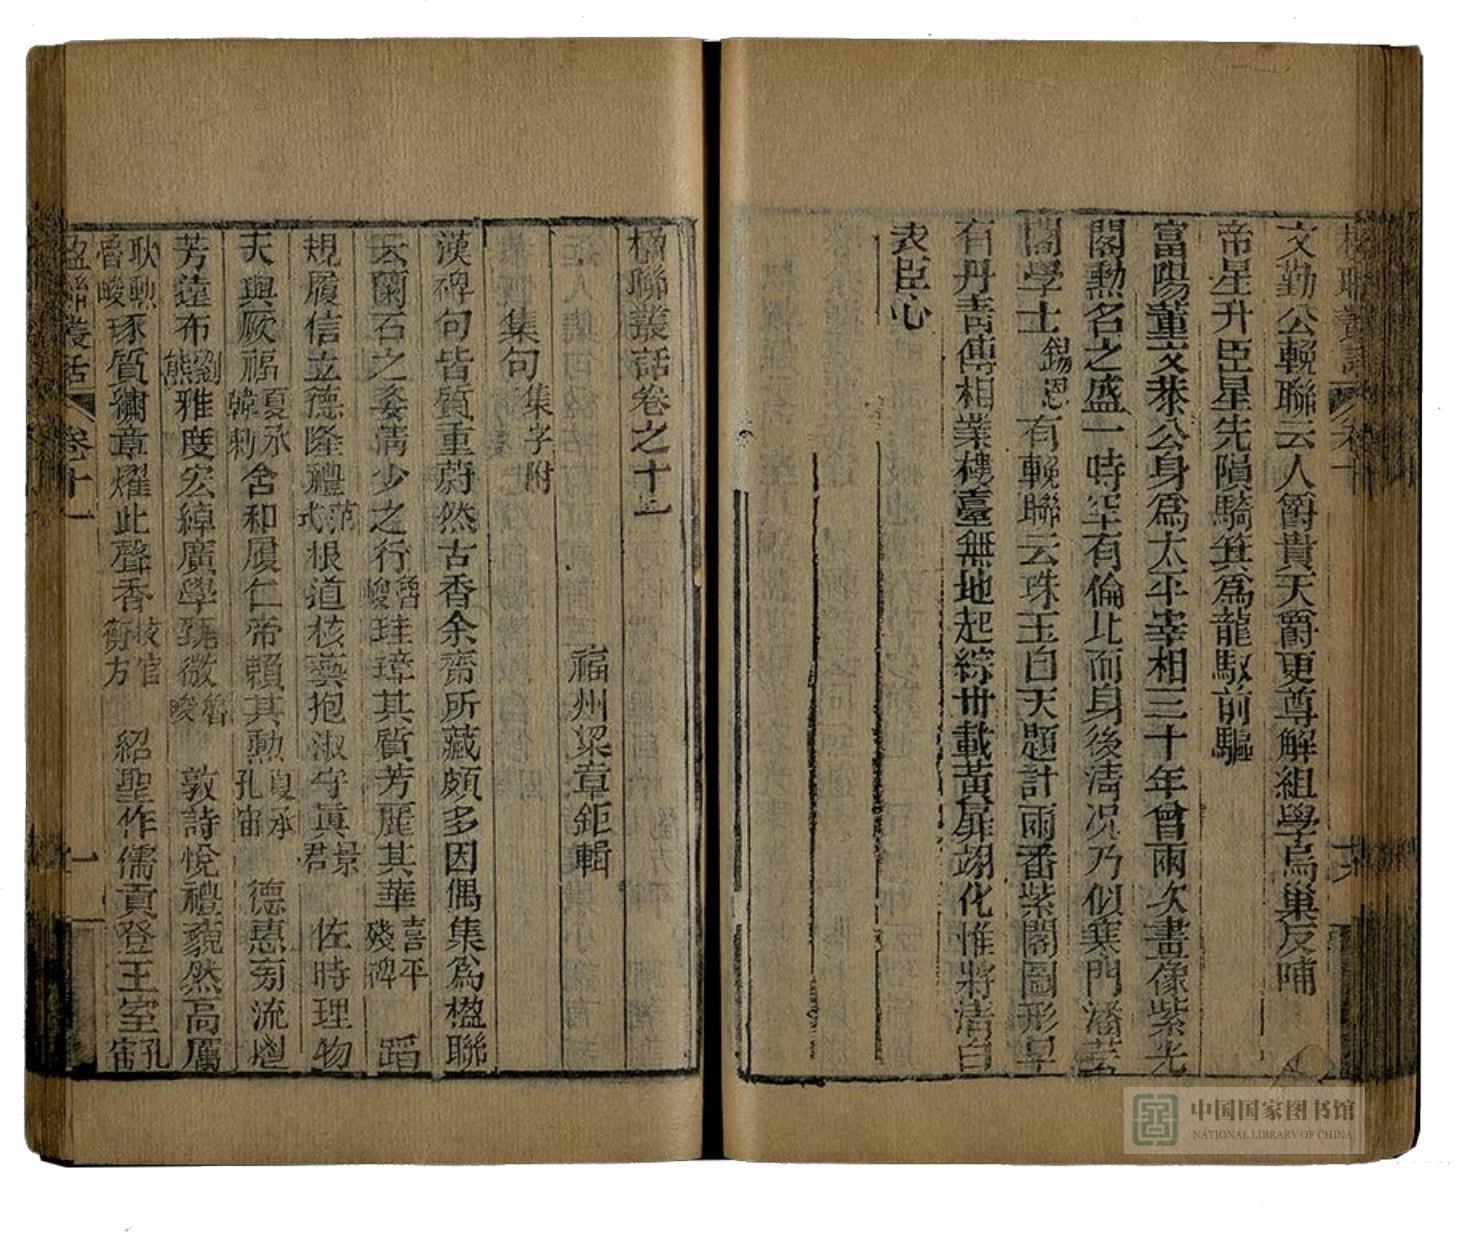 文勤公輓聯云人爵貴天爵更尊解組學烏巢反哺
帝星升臣星先隕騎箕爲龍馭前驅
富陽董文恭公身爲太平宰相三十年曾兩次畫像紫光
閣勲名之盛一時罕有倫比而身後清况乃似寒門潘芸
閣學士錫恩有輓聯云珠玉白天題計兩番紫閣圖形早
有丹青傳相業樓臺無地起綜卅載黃扉翊化惟將清白
表臣心
楹聯叢話卷之十一
福州梁章鉅輯
集句集字附
漢碑句皆質重蔚然古香余齋所藏頗多因偶集爲楹聯
云蘭石之姿清少之行魯峻珪璋其質芳麗其華喜平殘碑 蹈
規履信立德隆禮范式根道核藝抱淑守眞景君 佐時理物
天與厥福夏承韓勑含和履仁帝賴其勲夏承孔宙 德惠旁流
芳遠布劉熊雅度宏綽廣學甄微魯峻 敦詩悅禮藐然高厲
耿勲魯峻琢質繡章燿此聲香校官衡方 紹聖作儒貢登王室孔宙
楹聯叢話 卷十一 一
中国国家图书馆
NATIONAL LIBRARY OF CHINA